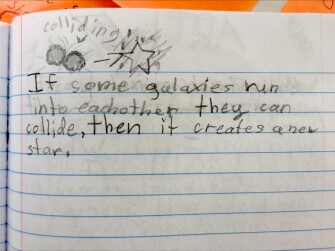 colliding!
If some galaxies run
into eachother they can
collide, then it creates a new
star.